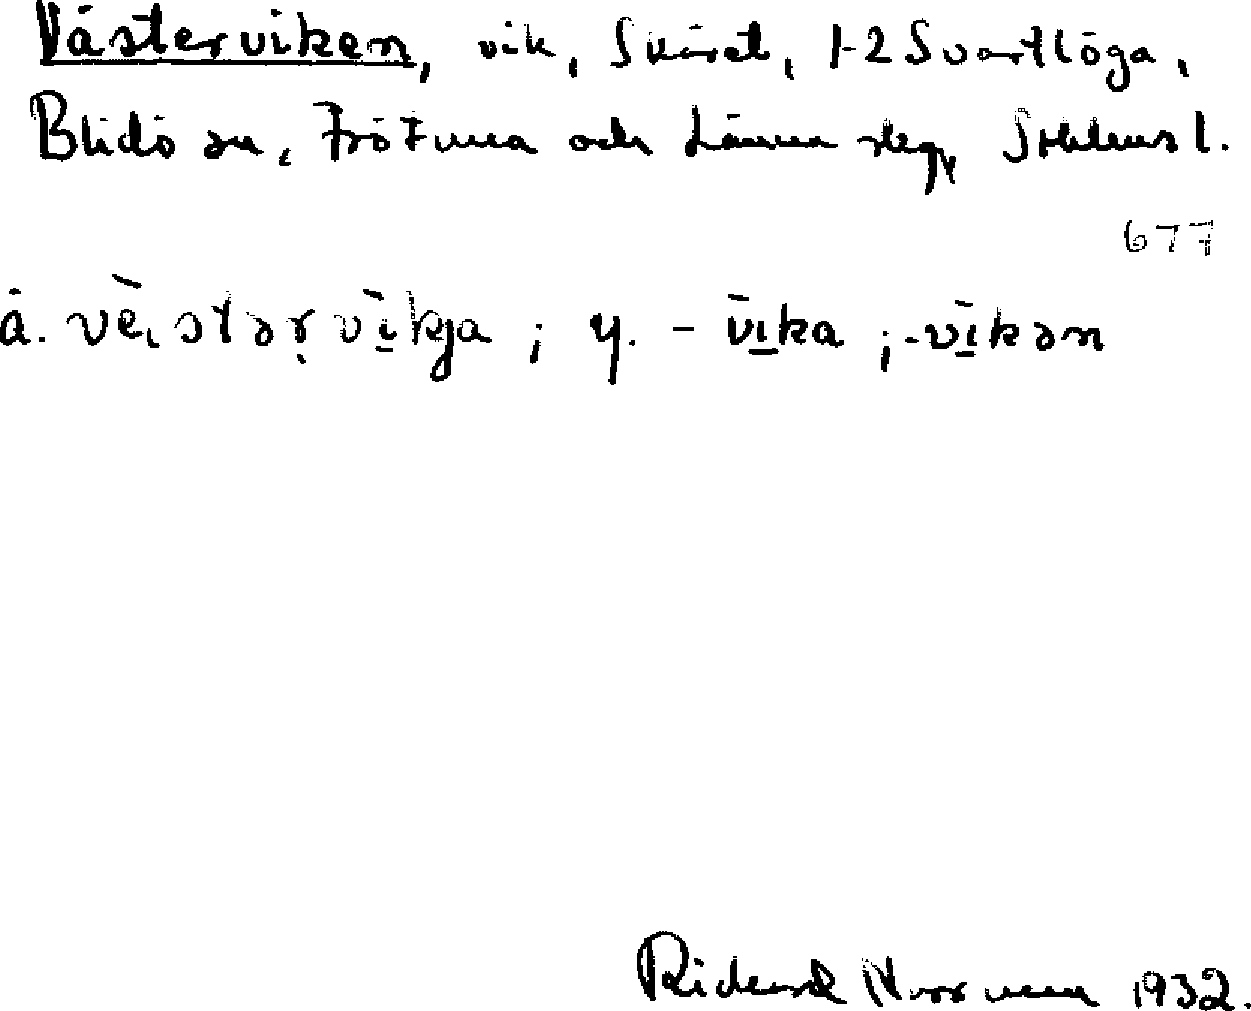 Västerviken, vik, Skäret, 1-2 Svartlöga,
Blidö sn, Frötuna och Länna skg, Sthlms l.
677
ä. vè̄stər̥vìkja ; y. - vika ; -vikən
Rickard Norrman 1932.